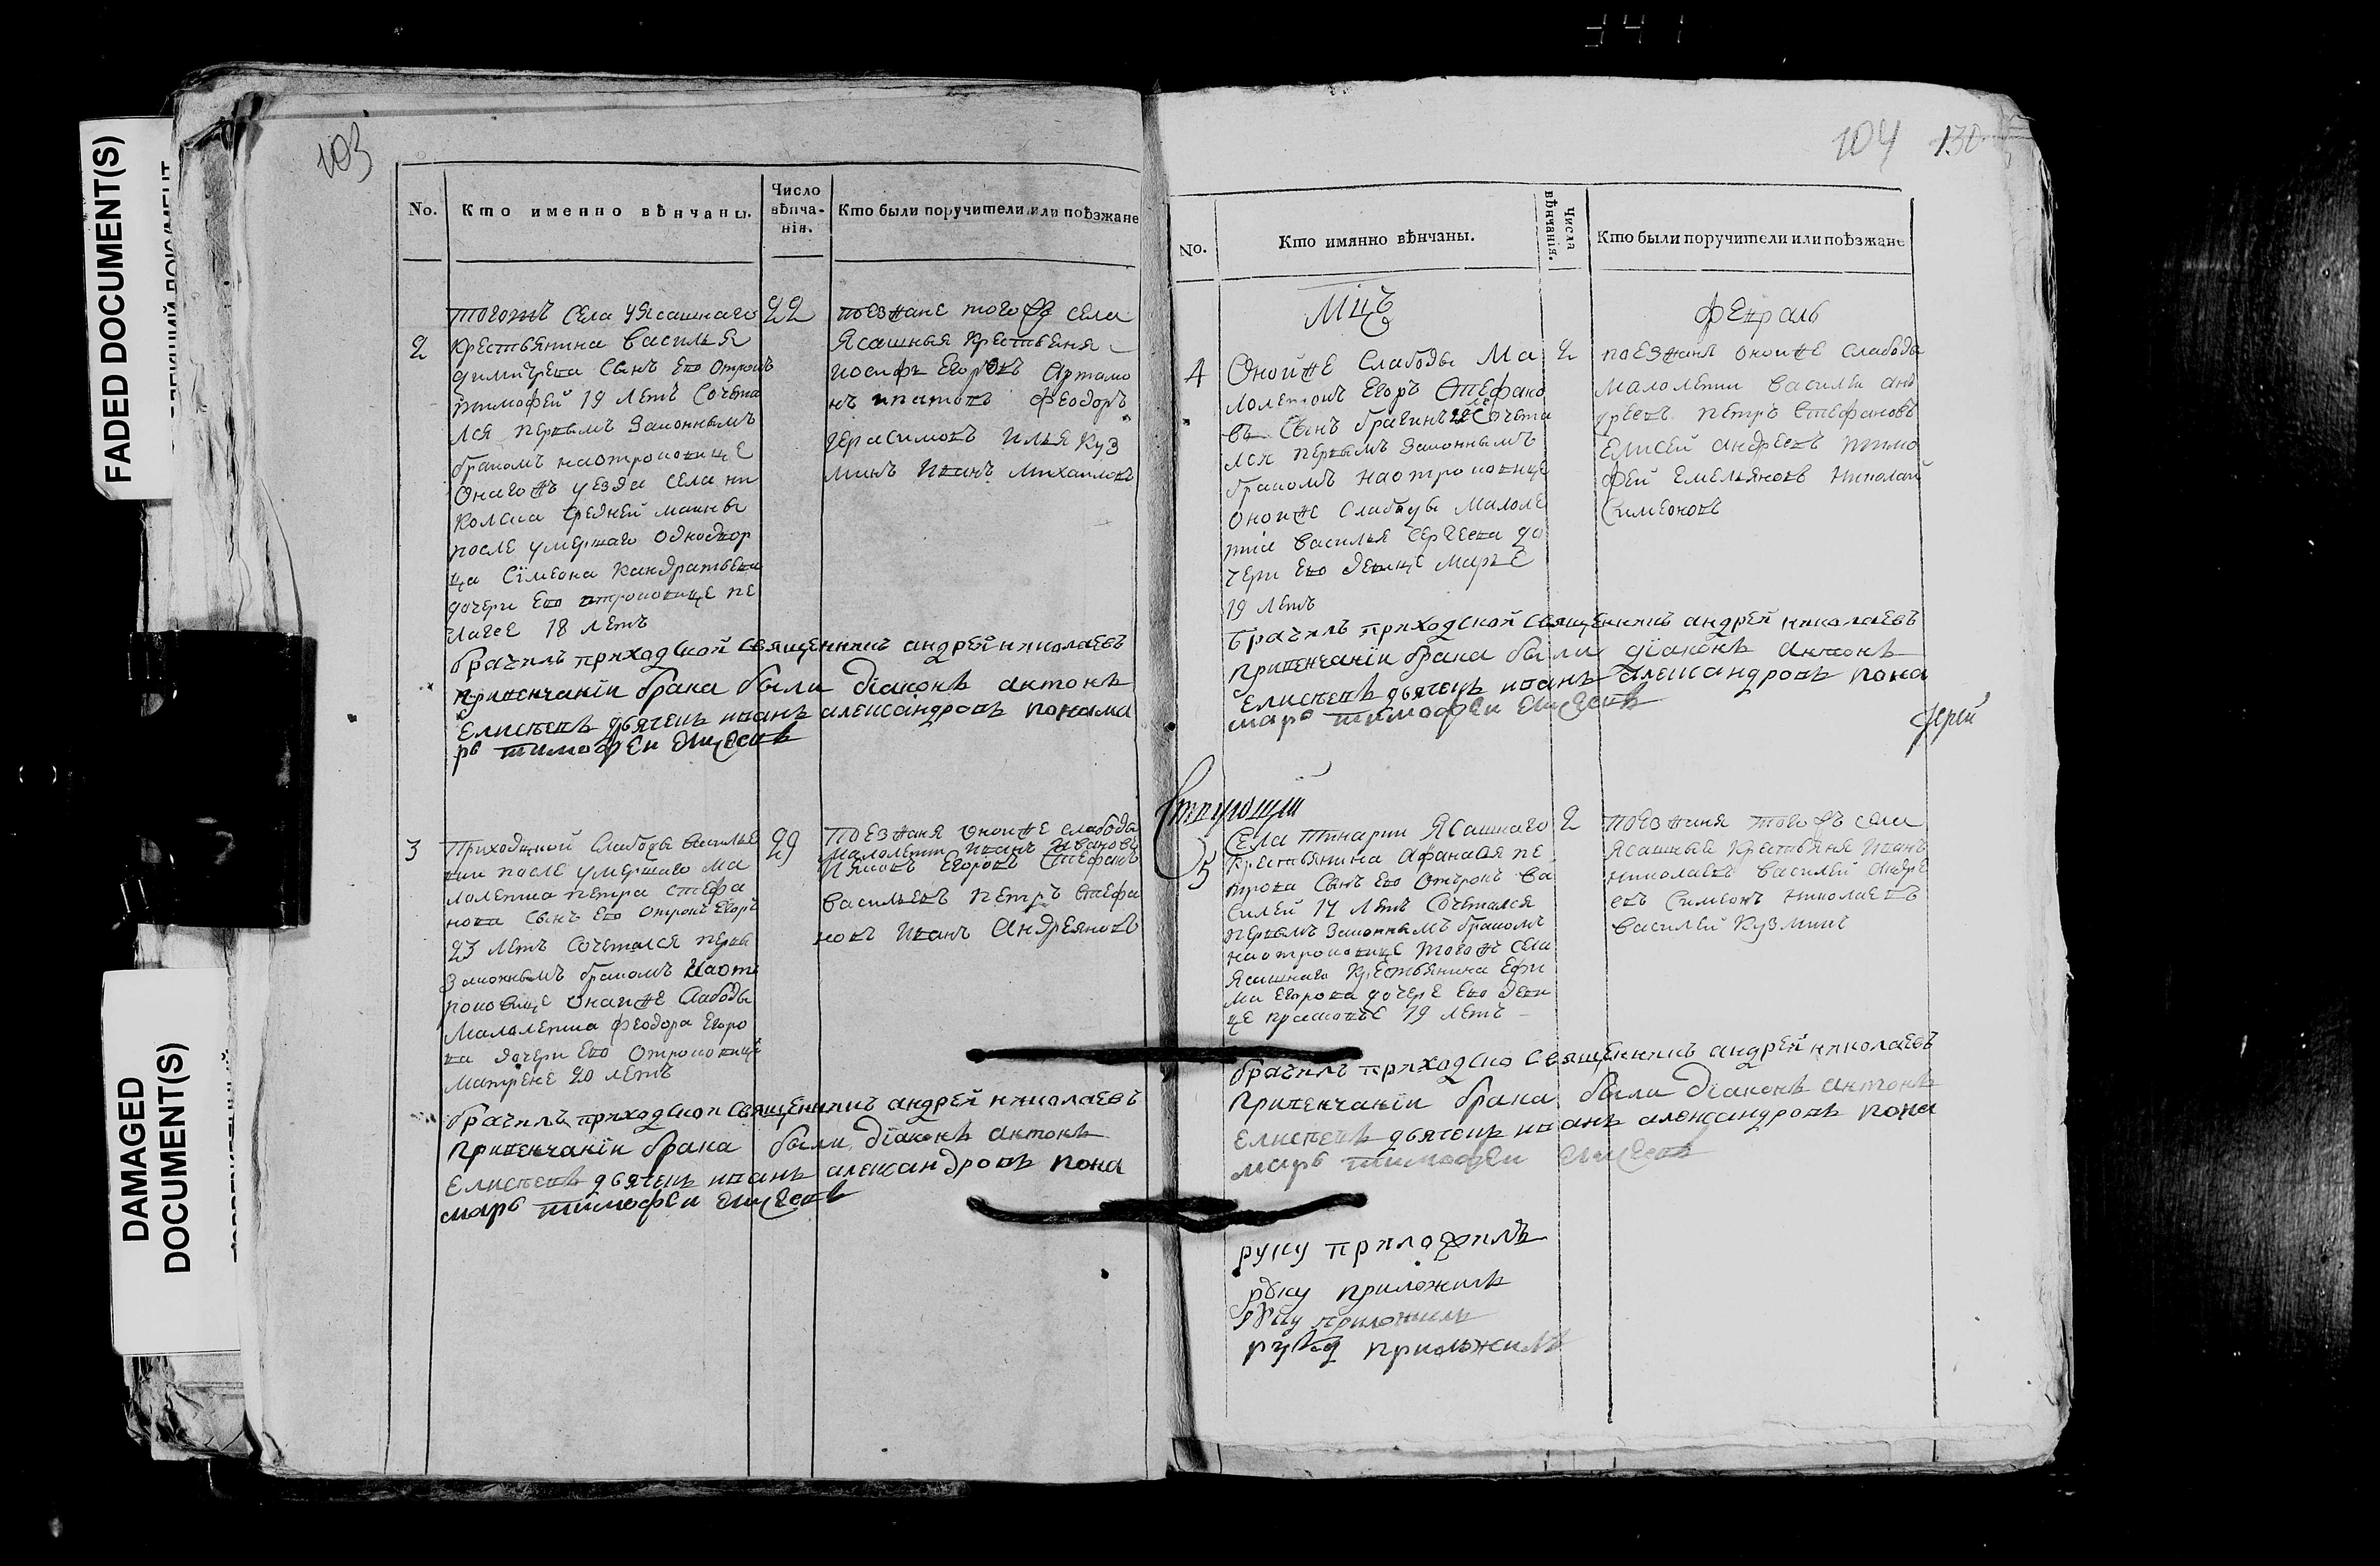 FADED DOCUMENT(S)
DAMAGED
DOCUMENT(S)
103
No.
Кто именно вѣнчаны.
Число
вѣнча-
нія.
Кто были поручители или поѣзжане
2
тогожъ села уясашнаго
крестьянина василья
димитрева сынъ ево отрокъ
тимофей 19 летъ сочета
лся первымъ законнымъ
бракомъ наотроковице
онагожъ уезда села ни
колска средней маинны
после умершаго однодвор
ца сімеона кандратьева
дочери ево отроковице пе
лагее 18 летъ
22
поезжане тогожъ села
ясашныя крестьяня
иосифъ егоровъ артамо
нъ ипатовъ феодоръ
герасимовъ илья куз
минъ иванъ михаиловъ
брачилъ приходской священникъ андрей николаевъ
привенчаніи брака были діаконъ антонъ
елисеевъ дьячекъ иванъ александровъ понама
рь тимофеи
3
Приходцкой слабоды василье
после умершаго ма
лолетка петра стефа
нова сынъ ево отрокъ егоръ
23 летъ сочетался первы
законнымъ бракомъ наот
роковице онаиже слабоды
малолетка феодора егоро
ва дочери ево отроковице
матрене 20 летъ
29
поезжаня оноиже слабоды
малолетки иванъ ивановъ
егоровъ стефанъ
васильевъ петръ стефа
новъ иванъ андреяновъ
брачилъ приходскои священникъ андрей николаевъ
привенчаніи брака были діаконъ антонъ
елисеевъ дьячекъ иванъ александровъ пона
марь тимофеи
104 130
No.
Кто имянно вѣнчаны.
Числа
вѣнчанія.
Кто были поручители или поѣзжане
Мцъ
февраль
4
Онойже слабоды ма
лолетокъ егоръ стефано
въ сынъ сочета
лся первымъ законнымъ
бракомъ наотроковице
оноиже слабоды малоле
тка василья сергеева до
чери ево девице марье
19 летъ
2
поезжаня оноиже слабоды
малолетки василеи анд
реевъ петръ стефановъ
елисей андреевъ тимо
фей емельяновъ николай
симеоновъ
брачилъ приходской священникъ андрей николаевъ
привенчаніи брака были діаконъ антонъ
елисеевъ дьячекъ иванъ александровъ пона
марь тимофеи
ерей
5
Села тинарки ясашнаго
крестьянина афанасья пе
трова сынъ ево отрокъ ва
силей 17 летъ сочетался
первымъ законнымъ бракомъ
наотроковице тогожъ села
ясашнаго крестьянина ефи
ма егорова дочере ево деви
це прасковье 19 летъ
2
поезжаня тогожъ села
ясашныя крестьяня иванъ
николаевъ василей андре
евъ симеонъ николаевъ
василей кузминъ
брачилъ приходско священникъ андрей николаевъ
привенчаніи брака были діаконъ антонъ
елисеевъ дьячекъ иванъ александровъ пона
марь тимофеи
руку приложилъ
руку приложилъ
руку приложилъ
руку приложилъ